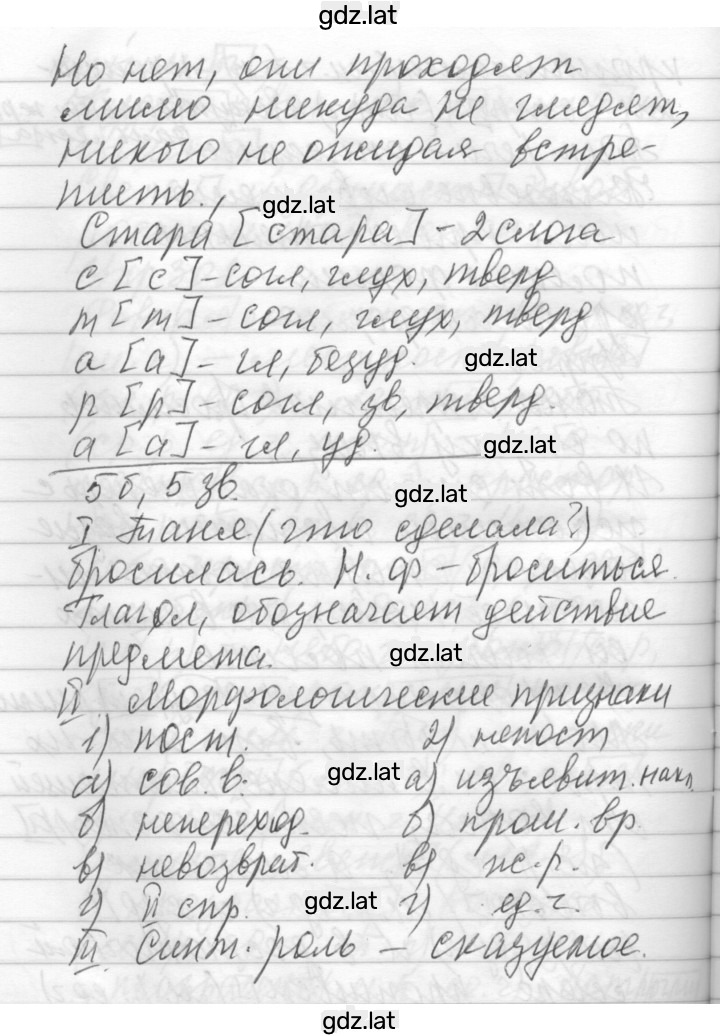 gdz.lat
Но нет, они проходят
мимо никуда не глядят,
никого не ожидая встре-
тить.,
gdz.lat
Стара [стара] - 2 слога
с [с] - согл, глух, тверд
т [т] - согл, глух, тверд
а [а] - гл, безуд.
gdz.lat
р [р] - согл, зв, тверд.
а [а] - гл, уд.
gdz.lat
5 б, 5 зв.
gdz.lat
I Таня (что сделала?)
бросилась. Н. ф - броситься.
Глагол, обозначает действие
предмета.
gdz.lat
II Морфологические признаки
1) пост. 2) непост
а) сов. в. gdz.lat а) изъявит. накл.
б) непереход. б) прош. вр.
в) невозврат. в) ж. р.
г) II спр. gdz.lat г) ед. ч.
III. Синт. роль - сказуемое.
gdz.lat